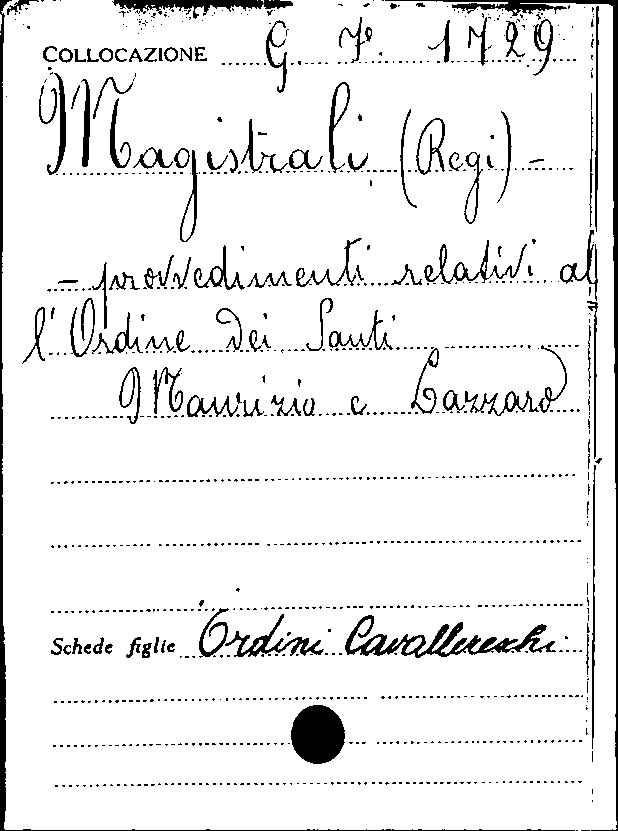 COLLOCAZIONE G. F. 1729
Magistrali (Regi) -
- provvedimenti relativi al
l'Ordine dei Santi
Maurizio e Lazzaro
Schede figlie Ordini Cavallereschi